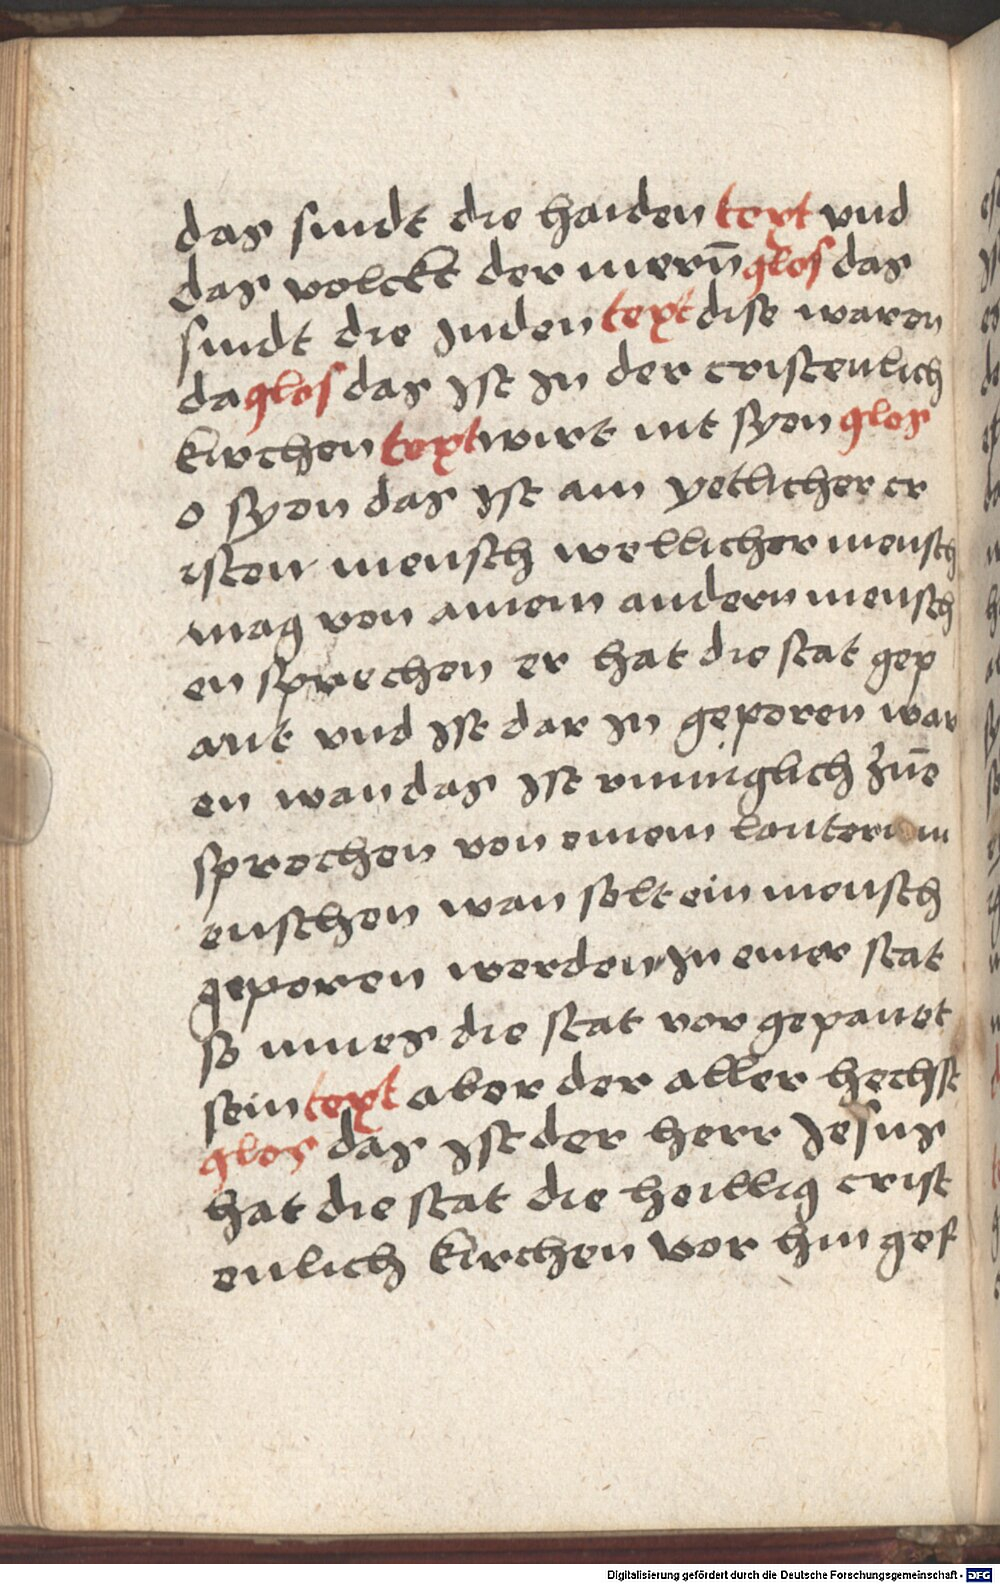 das sindt die haiden text vnd
das volckt der mern̄ glos das
sindt die Juden text dise waren
da glos das Jst Jn der cristenlich
kirchen text wirt nit syon glos
o syon das Jst ain yetlicher cr
isten mensch wellicher mensch
mag von ainem andern mensch
en sprechen er hat die stat gep
aut vnd Jst dar Jn geporen war
en wan das Jst vnmüglich zūe
sprechen von einem lautern m
enschen wan solt ein mensch
geporen werden Jn einer stat
so mues die stat vor gepauet
sein text aber der aller hechst
glos das Jst der herr Jesus
hat die stat die heillig crist
enlich kirchen vor hin gef
Digitalisierung gefördert durch die Deutsche Forschungsgemeinschaft - DFG